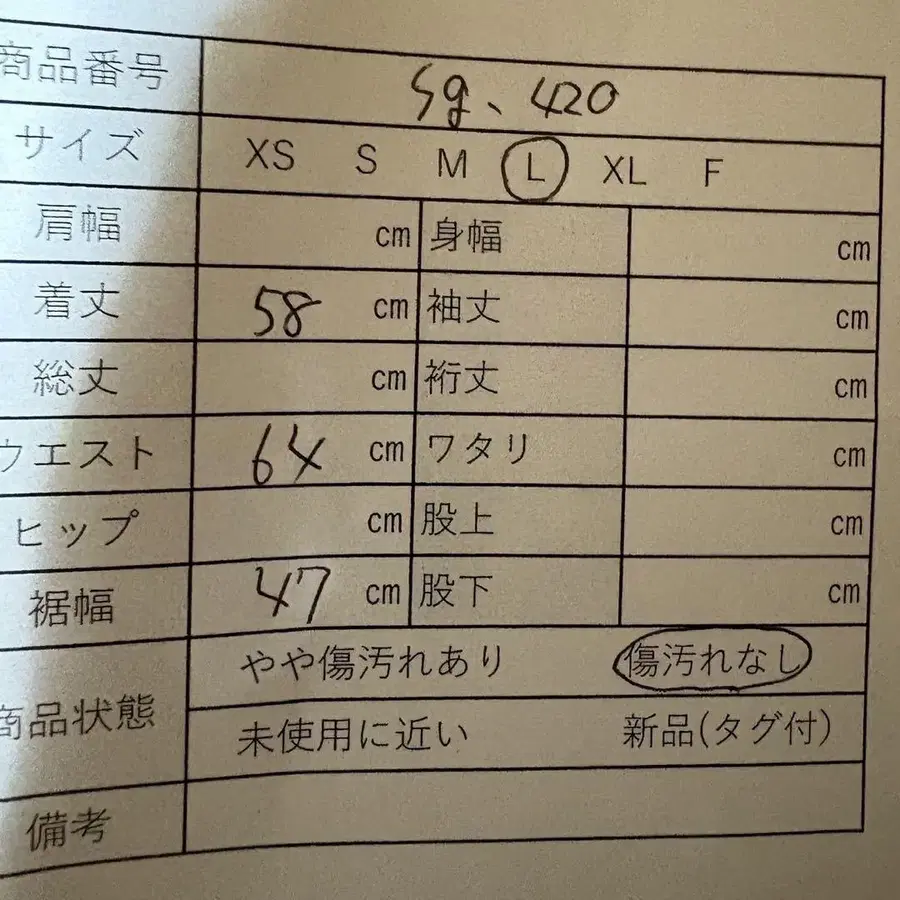 商品番号 Sg、420
サイズ XS S M L XL F
肩幅 cm 身幅 cm
着丈 58 cm 袖丈 cm
総丈 cm 裄丈 cm
ウエスト 64 cm ワタリ cm
ヒップ cm 股上 cm
裾幅 47 cm 股下 cm
商品状態 やや傷汚れあり 傷汚れなし
未使用に近い 新品(タグ付)
備考